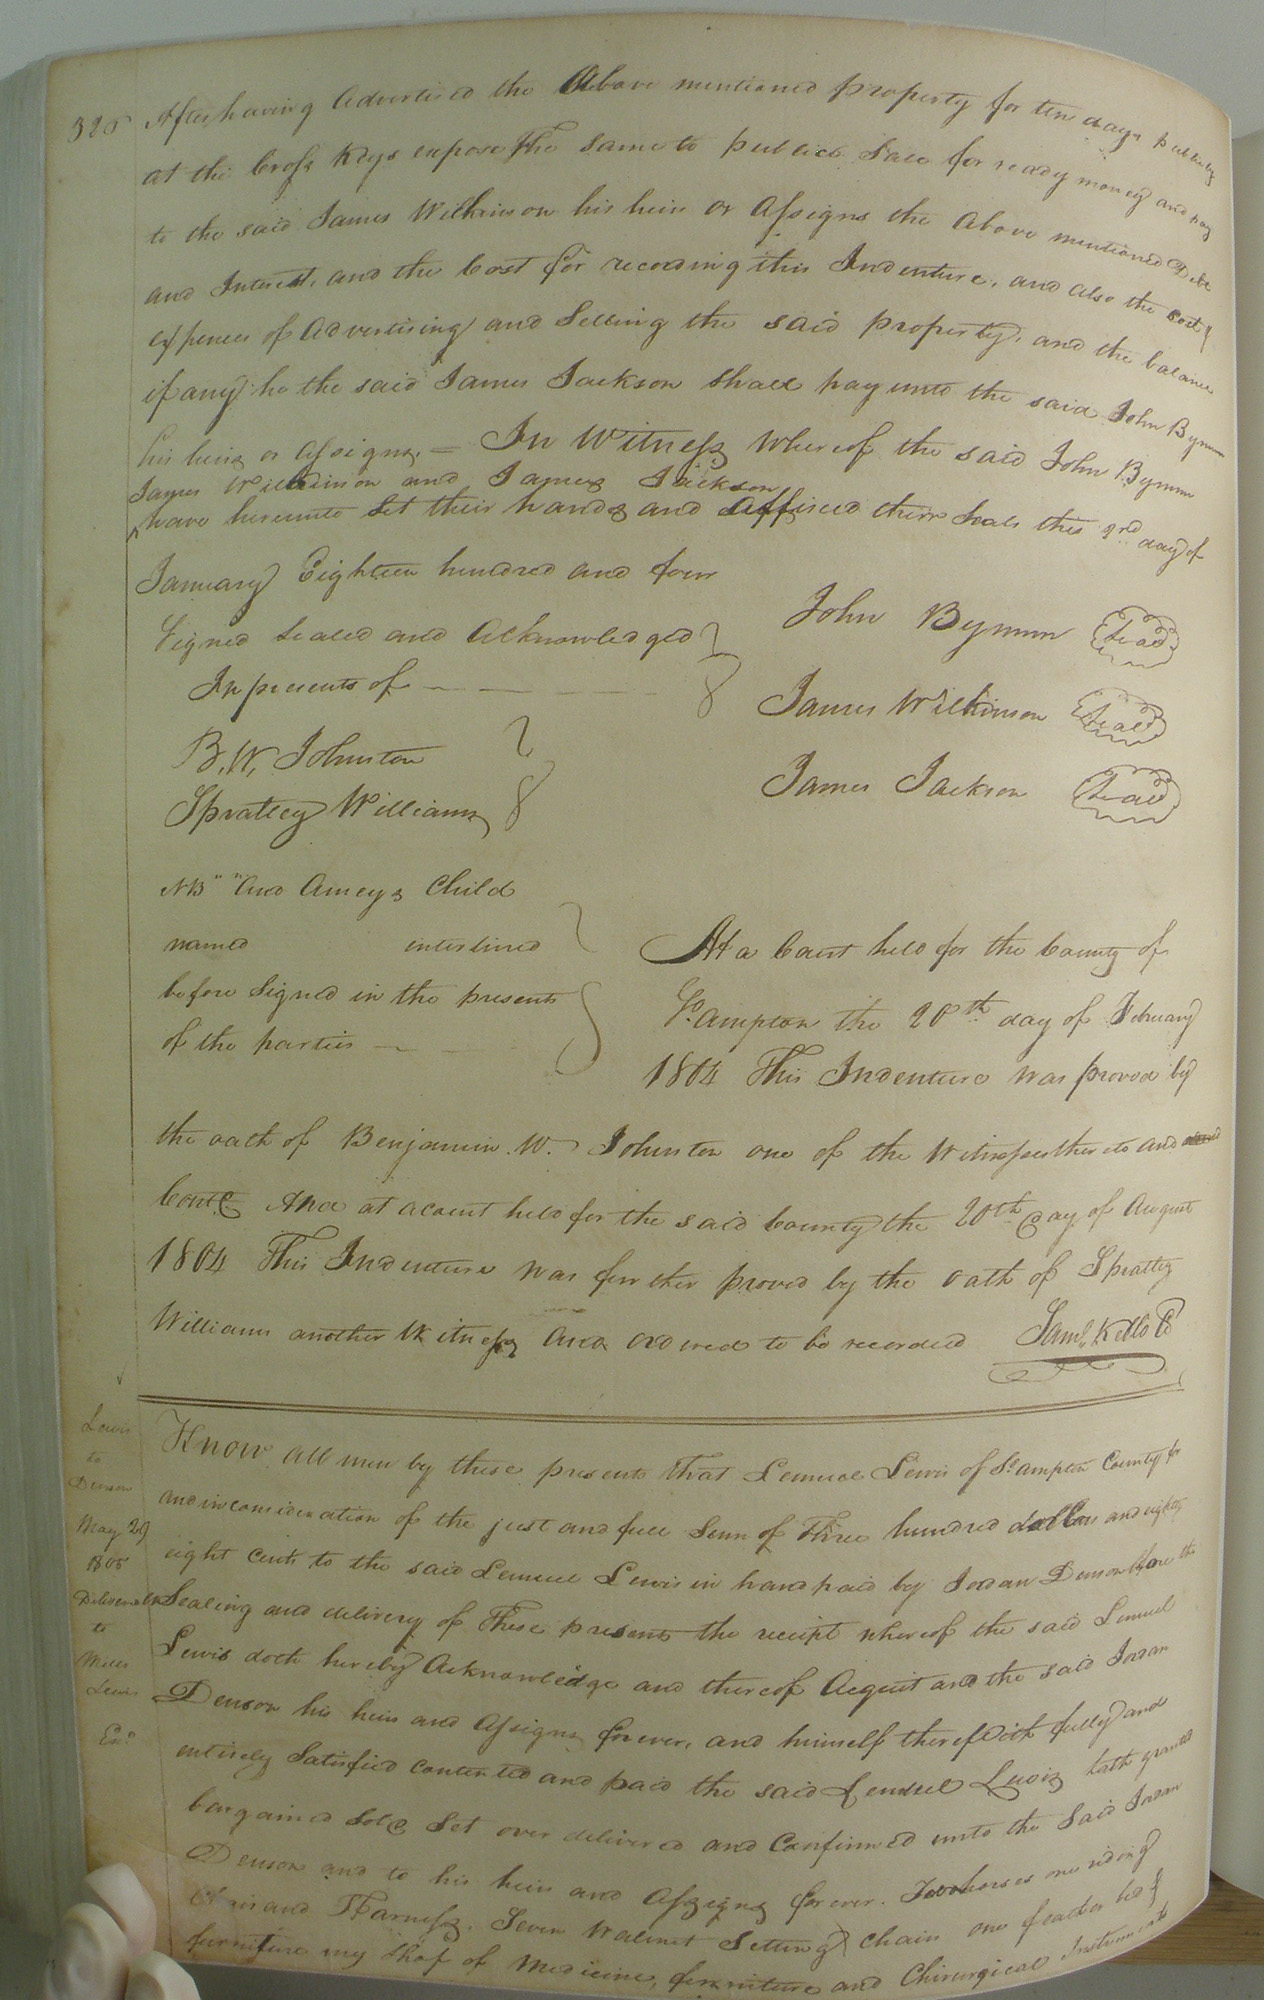 326
After having Advertised the Above mentioned property for ten days publickly
at the Cross Keys expose the Same to publick Sale for ready money and pay
to the said James Wilkinson his heirs or Assigns the Above mentioned Debt
and Interest, and the Cost for recording this Indenture, and also the Cost &
expences of Advertising and Selling the said property, and the balance
if any he the said James Jackson Shall pay unto the said John Bynum
his heirs or Assigns. = In Witness Whereof the said John Bynum
James Wilkinson and James Jackson
have hereunto Set their hands and Affixed there Seals this 3rd day of
January Eighteen hundred and four
Signed Sealed and Acknowledged
In presents of
B. W. Johnston
Spratley Williams
John Bynum Seal
James Wilkinson Seal
James Jackson Seal
NB " "And Ameys Child
named interlined
before Signed in the presents
of the parties
At a Court held for the County of
So.ampton the 20th day of February
1804 This Indenture was proved by
the oath of Benjamin W. Johnston one of the Witnesses thereto and
Contd And at a Court held for the said County the 20th day of August
1804 This Indenture was further proved by the oath of Spratley
Williams another Witness And ordered to be recorded Saml. Kello CC
Lewis
to
Denson
May 29
1805
Delivered
to
Mills
Lewis
Exr.
Know all men by these presents that Lemuel Lewis of So.ampton County for
and in consideration of the just and full Sum of Three hundred dollars and eighty
eight Cents to the said Lemuel Lewis in hand paid by Jordan Denson before the
Sealing and delivery of these presents the receipt whereof the said Lemuel
Lewis doth hereby Acknowledge and thereof Acquit and the said Jordan
Denson his heirs and Assigns forever, and himself therewith fully and
entirely Satisfied contented and paid the said Lemuel Lewis hath granted
bargained Sold Set over delivered and Confirmed unto the Said Jordan
Denson and to his heirs and Assigns forever. Two horses one riding
Chair and Harness, Seven Walnut Setting Chairs one feather bed &
furniture my Shop of Medicine, furniture and Chirurgical Instruments